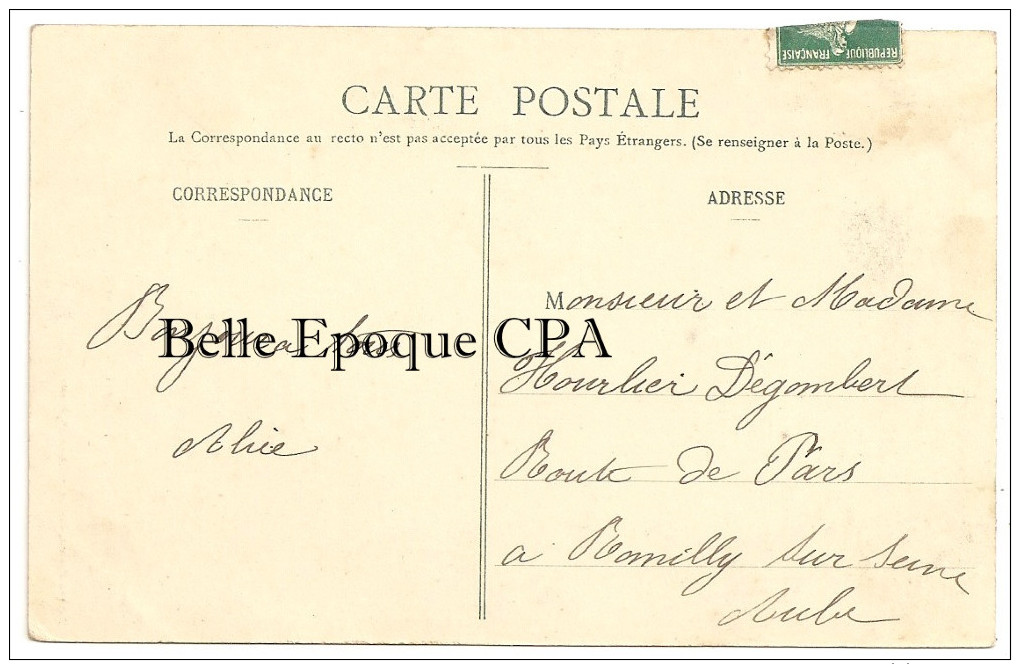 REPUBLIQUE FRANÇAISE
CARTE POSTALE
La Correspondance au recto n'est pas acceptée par tous les Pays Étrangers. (Se renseigner à la Poste.)
CORRESPONDANCE
Belle Epoque CPA
Alice
ADRESSE
Monsieur et Madame
Hourlier Dégombert
Route de Pars
a Romilly sur Seine
Aube